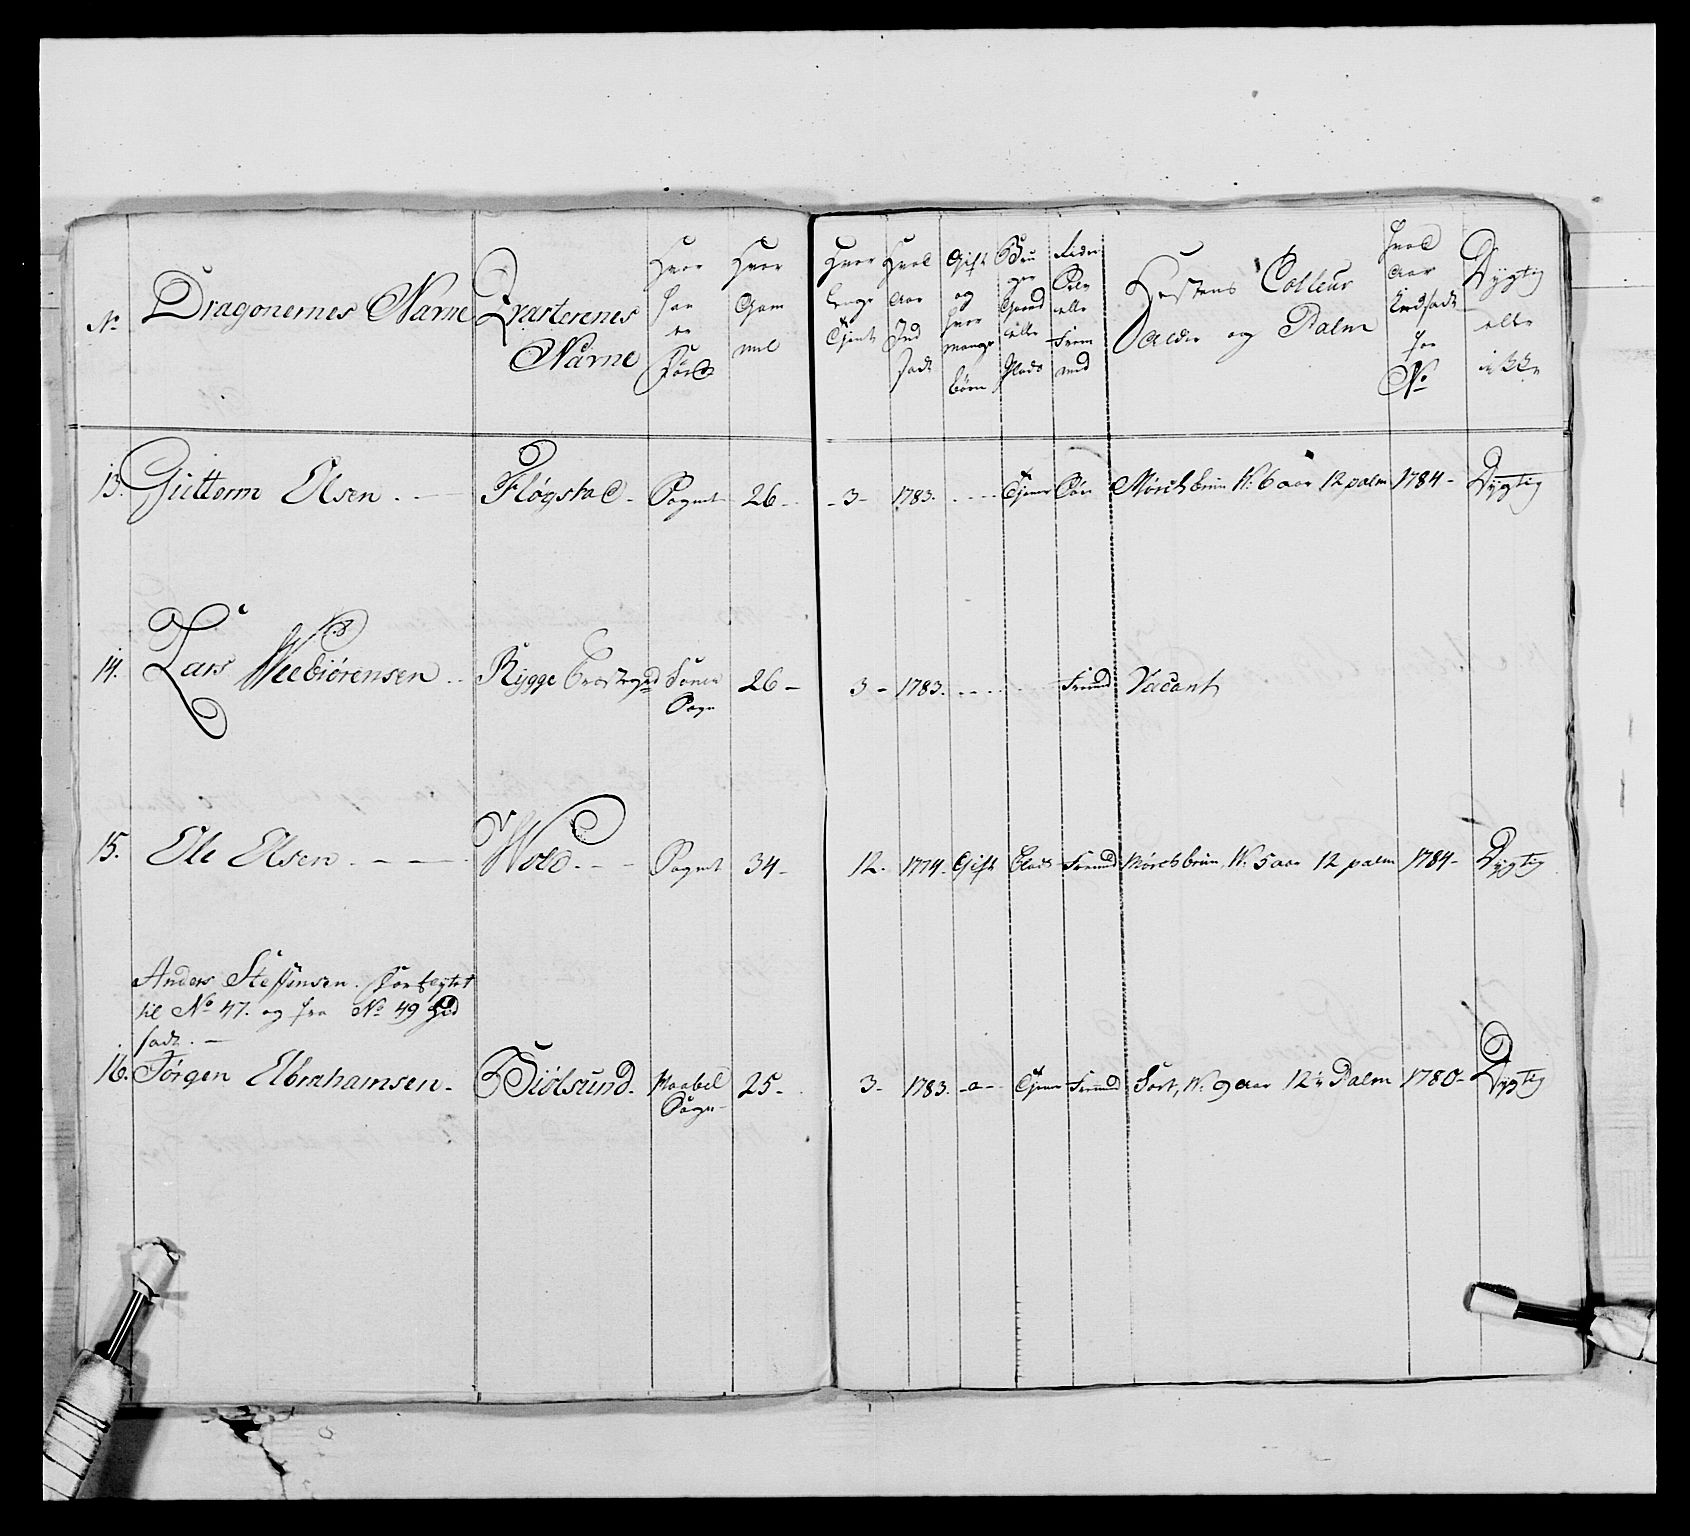 No
Dragonernes Navne
Qvarterenes Navne
Hvor han er Född
Hvor Gam mel
Hvor lenge Tjent
Hvad Aar Ind sadt
Gift og hvor mange börn
Bru ger Gaard eller Plads
eller Frem med
Hestens Colleur Alder og Palm
hvad Aar Indsadt for No
Dygtig eller ikke
13. Guttorm Olsen. Fløgstad Sognet 26 3 1783. Tjener Mörchbrun N: 6 aar 12 palm 1784 Dygtig
14. Lars Weebiörensen Rygge Præstegd Soner Sogn 26 3 1783. Fremd Vacant
15. Ole Olsen Wold Sognet 34 12. 1774. Gift Plads Fremd Mörchbrun N: 5 aar 12 palm 1784 Dygtig
Anders Steffensen. forflytet
til No 47. og fra No 49 Hid
sadt.
16. Jørgen Abrahamsen Biölsund Haabel Sogn 25 3 1783. Tjener Fremd Sort, N: 9 aar 12¼ Palm 1780 Dygtig